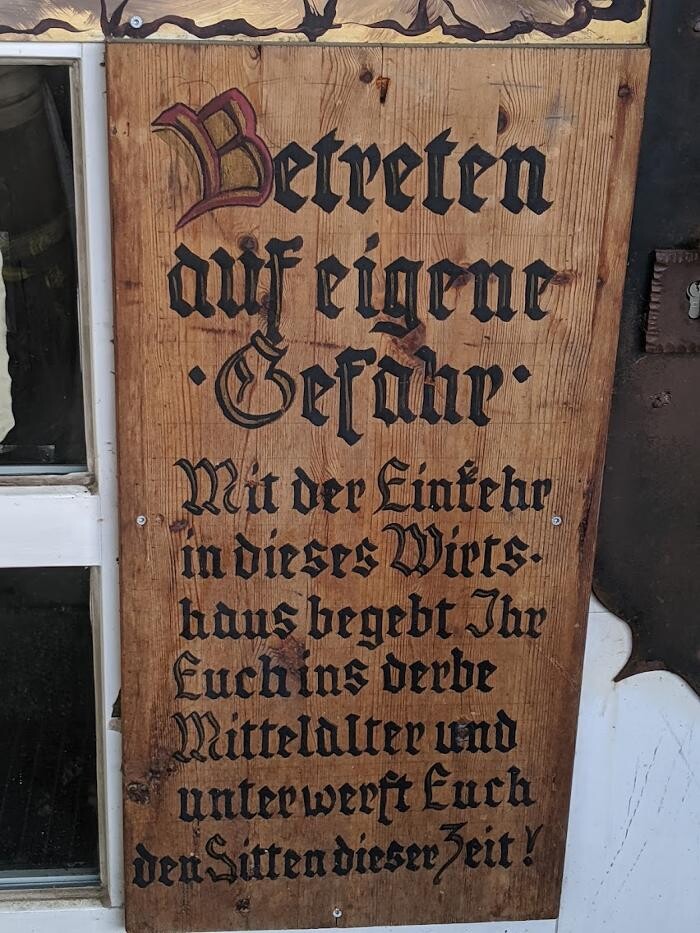 Betreten
auf eigene
·Gefahr·
Mit der Einkehr
in dieses Wirts-
haus begebt Ihr
Euch ins derbe
Mittelalter und
unterwerft Euch
den Sitten dieser Zeit!